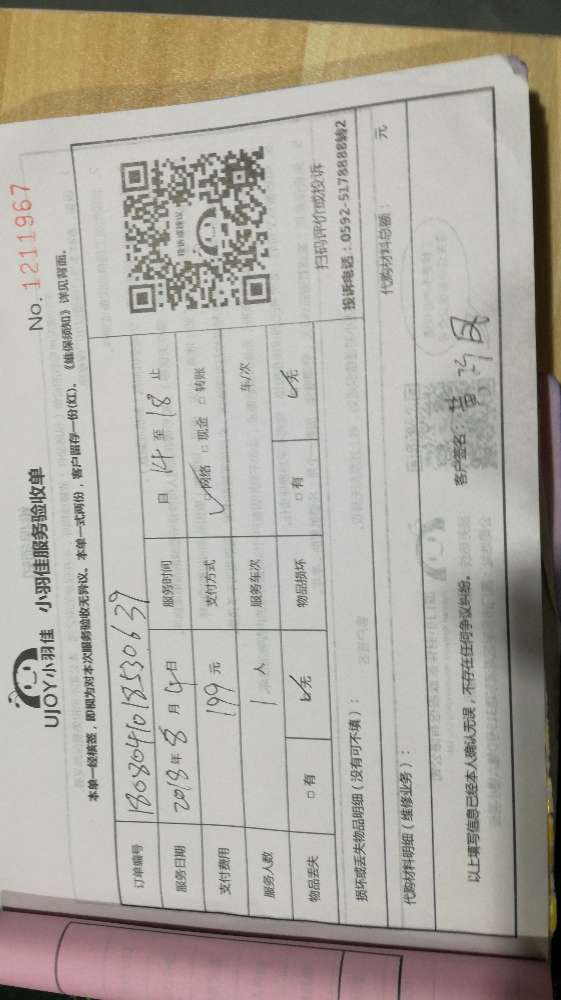 UJOY小羽佳 小羽佳服务验收单 No. 1211967
本单一经核签，即视为对本次服务验收无异议。本单一式两份，客户留存一份(红)。《维保须知》详见背面。
订单编号 180804101853063 9
服务日期 2018年 8 月 4 日 服务时间 自 14 至 18 止
支付费用 199 元 支付方式 ☑网络 □现金 □转账
服务人数 1 人 服务车次 车/次
物品丢失 □有 ☑无 物品损坏 □有 ☑无
投诉或建议
扫码评价或投诉
投诉电话：0592-5178888转2
损坏或丢失物品明细（没有可不填）：
代购材料明细（维修业务）： 代购材料总额： 元
以上填写信息已经本人确认无误，不存在任何争议纠纷。 客户签名：